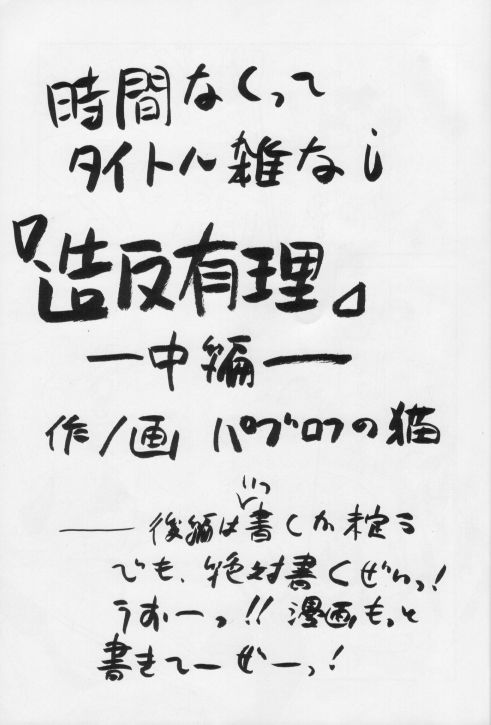 時間なくって
タイトル雑なし
『造反有理』
―中編―
作/画 パブロフの猫
いつ
――後編は書くか未定う
でも、絶対書くぜいっ!
うおーっ!!漫画もっと
書きてーぜーっ!